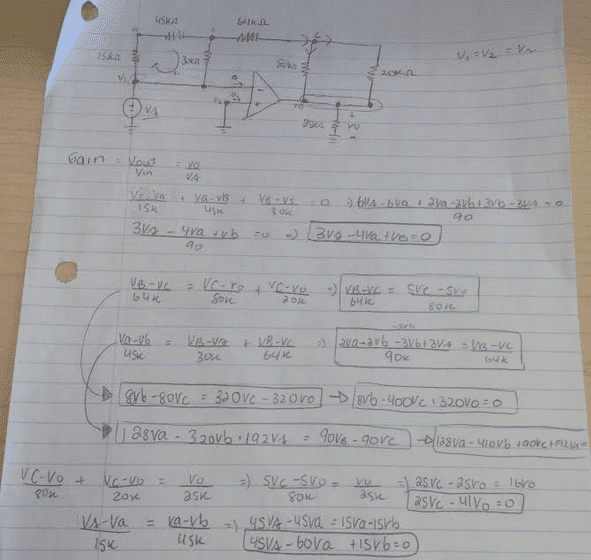 45KΩ 64KΩ
15KΩ 30KΩ C 80KΩ 20KΩ V₁=V₂=Vₙ
V₁
VA V₂ - + VO 25KΩ + VO -
Gain = Vout/Vin = VO/VA
(Vs-Va)/15K + (Va-VB)/45K + (VB-VS)/30K = 0 ⇒ (6VA-6Va+2Va-2Vb+3Vb-3VA)/90 = 0
(3VA-4Va+Vb)/90 = 0 ⇒ 3VA-4Va+VB=0
(VB-VC)/64K = (VC-VO)/80K + (VC-VO)/20K ⇒ (VB-VC)/64K = (5VC-5VO)/80K
(Va-Vb)/45K = (VB-VA)/30K + (VB-VC)/64K ⇒ (2Va-2VB-3VB+3VA)/90K = (VB-VC)/64K
8Vb-80VC = 320VC-320VO → 8Vb-400VC+320VO=0
128Va-320Vb+192VA = 90VB-90VC → 128Va-410Vb+90VC+192VA=0
(VC-VO)/80K + (VC-VO)/20K = VO/25K ⇒ (5VC-5VO)/80K = VO/25K ⇒ 25VC-25VO=16VO
25VC-41VO=0
(VA-Va)/15K = (Va-Vb)/45K ⇒ 45VA-45Va=15Va-15Vb
45VA-60Va+15Vb=0